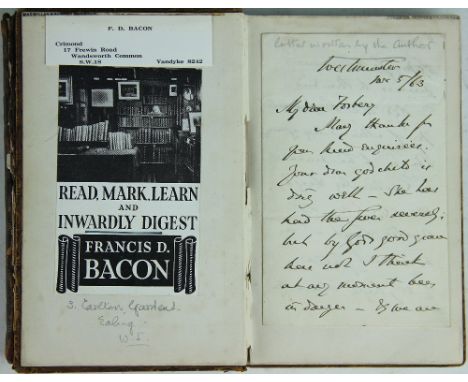 F. D. BACON
Crimond
17 Frewin Road
Wandsworth Common
S.W.18 Vandyke 8242
READ, MARK, LEARN
AND
INWARDLY DIGEST
FRANCIS D.
BACON
3. Carlton Gardens.
Ealing.
W 5
Letter written by the Author
Westminster
5/63
My dear
Many thanks for
your kind enquiries.
Your dear godchild is
doing well – she has
had the fever severely,
but by God's good grace
has not I think
at any moment been
in danger – & we are